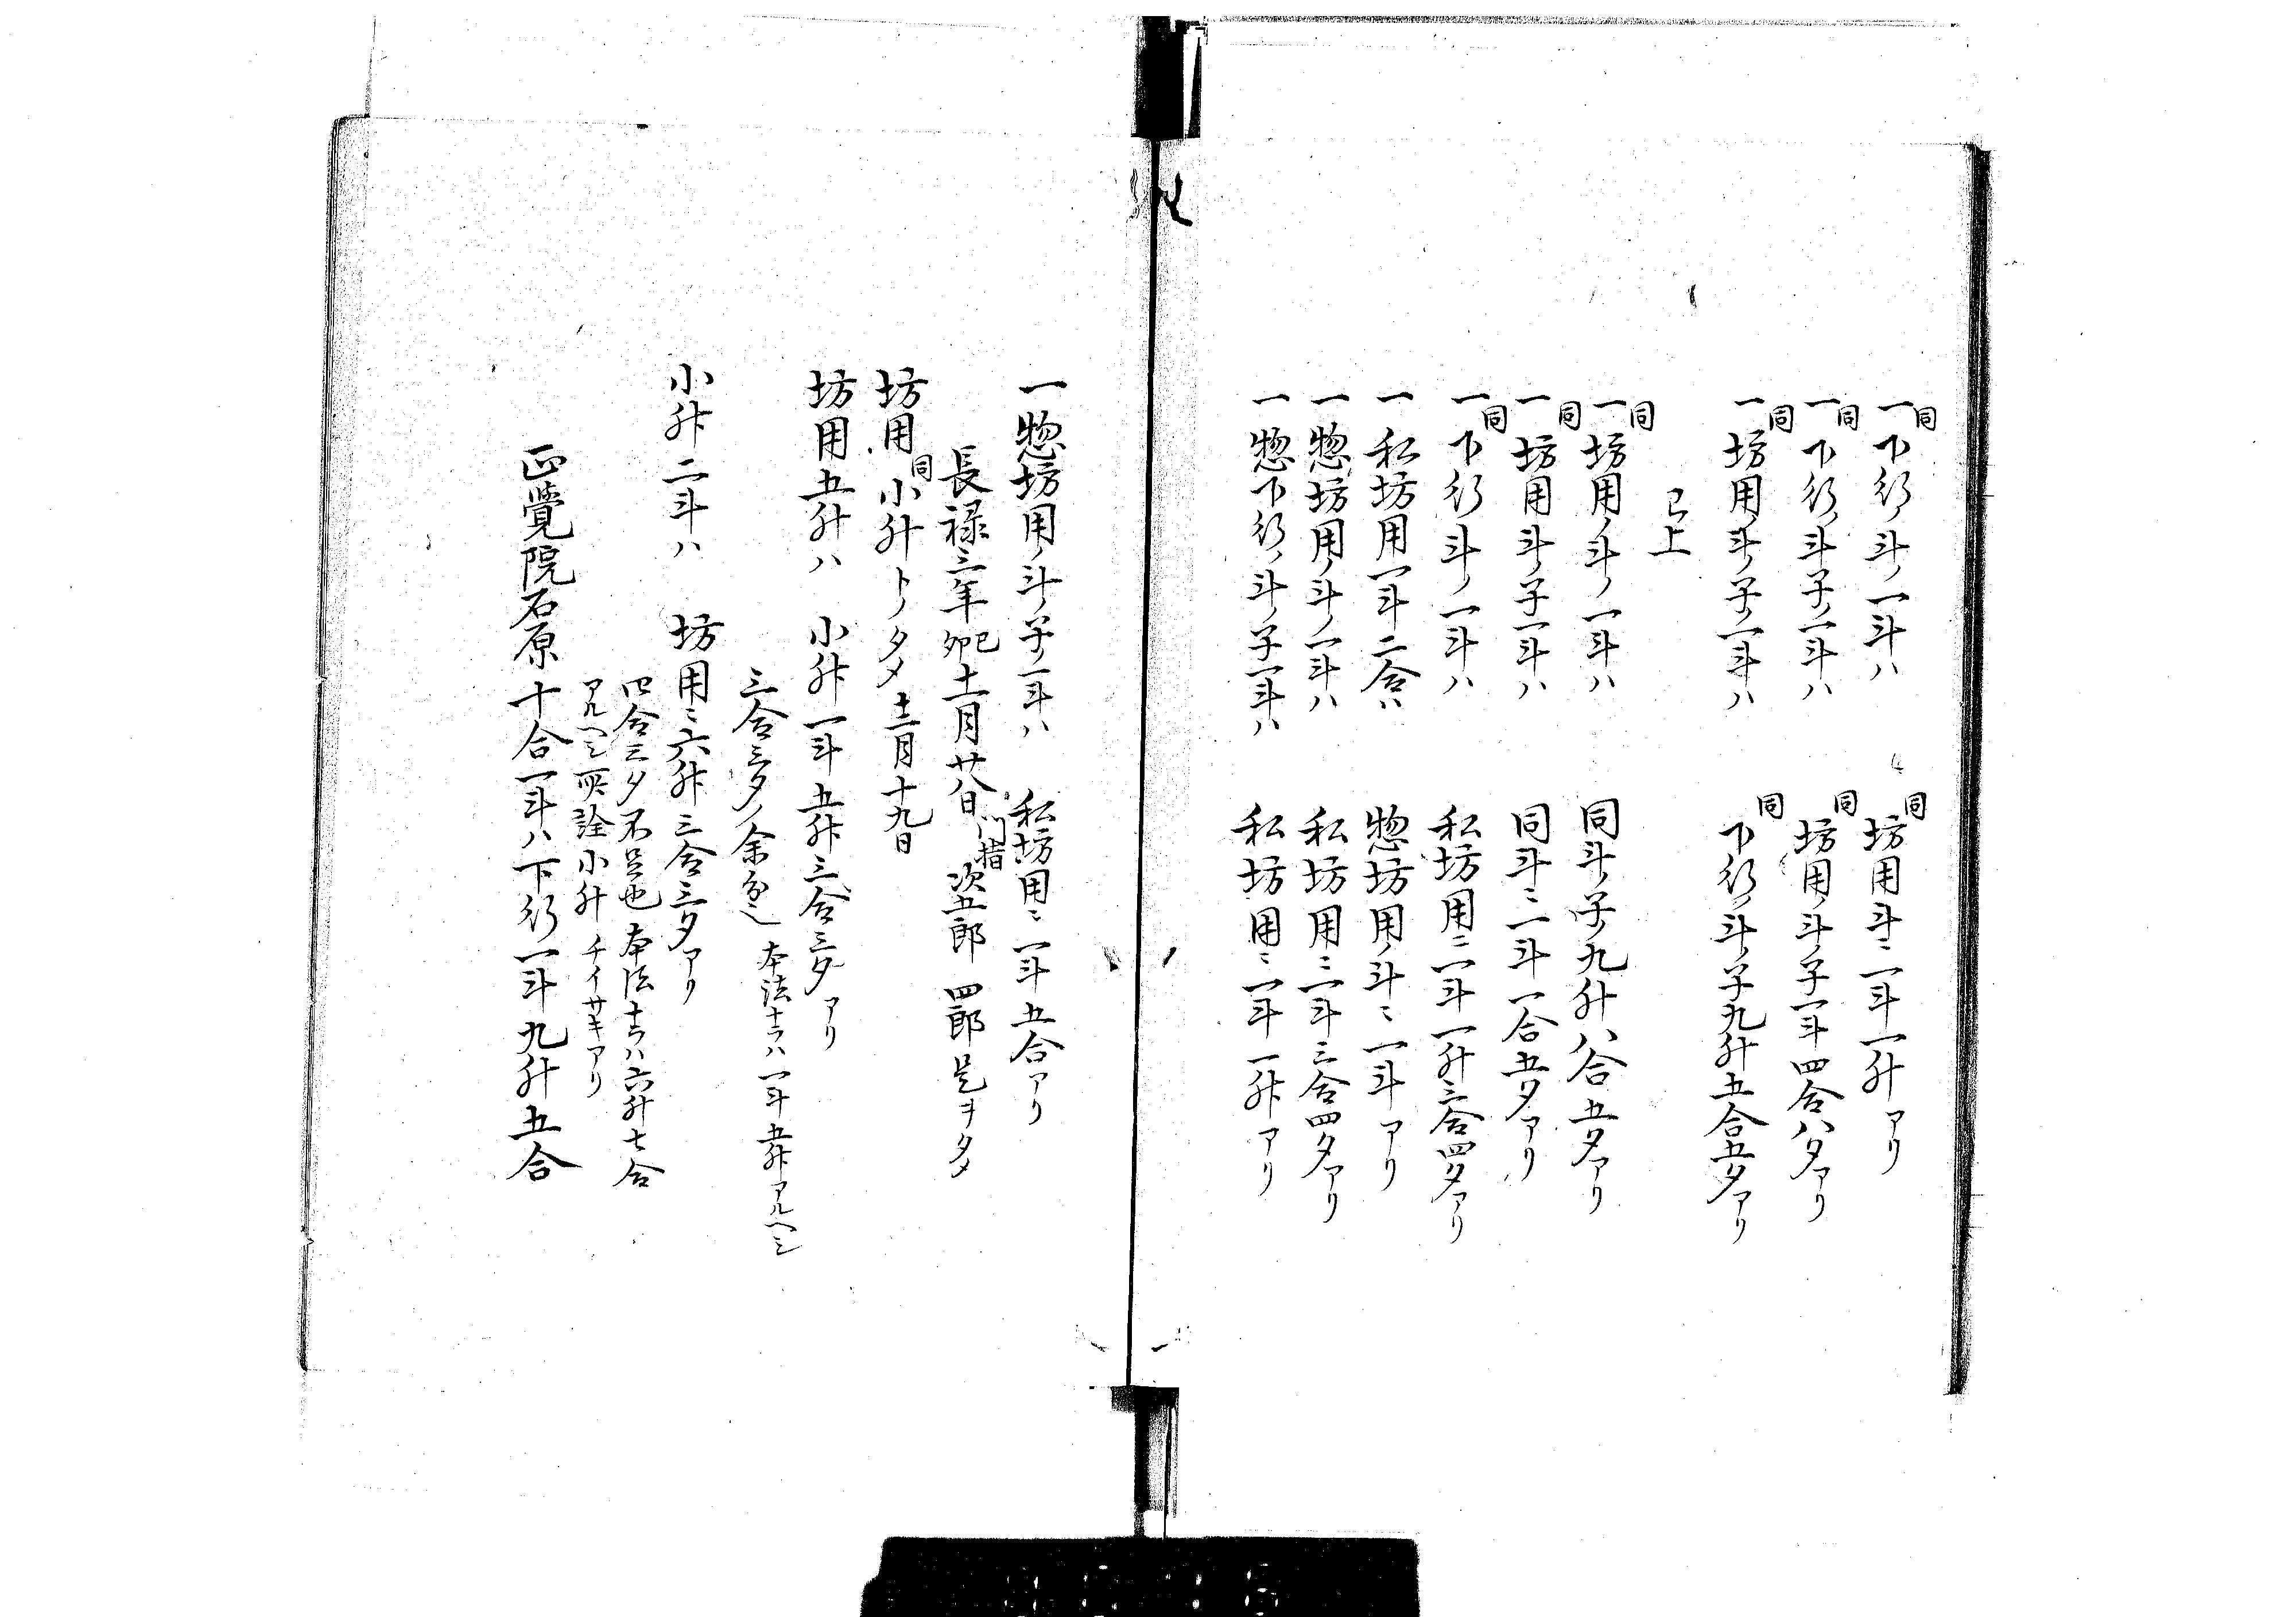 一同下行ノ斗ノ一斗ハ　同坊用斗ニ一斗一升アリ
一同下行ノ斗子一斗ハ　同坊用ノ斗ノ子一斗四合八夕アリ
一同坊用ノ斗ノ子ノ一斗ハ　同下行ノ斗ノ子九升五合五夕アリ
已上
一同坊用ノ斗ノ一斗ハ　同斗ノ子ノ九升八合五夕アリ
一同坊用斗ノ子一斗ハ　同斗ニ一斗一合五夕アリ
一同下行斗ノ一斗ハ　私坊用ニ一斗一升三合四夕アリ
一私坊用一斗二合ハ　惣坊用ノ斗ニ一斗アリ
一惣坊用ノ斗ノ一斗ハ　私坊用ニ一斗三合四夕アリ
一惣下行ノ斗ノ子一斗ハ　私坊用ニ一斗一升アリ
一惣坊用ノ斗ノ子ノ一斗ハ　私坊用ニ一斗五合アリ
長禄三年己卯十一月廿八日　門指　次五郎　四郎　是ヲタメ
坊用　同小升トノタメ　十二月十九日
坊用五升ハ　小升一斗五升三合三夕アリ
三合三夕ノ余
本法ナラハ一斗五升アルヘシ
小升二斗ハ　坊用ニ六升三合三夕アリ
四合三夕不足也　本法ナラハ六升七合
アルヘシ所詮小升チイサキアリ
正覺院石原十合一斗ハ下行一斗九升五合